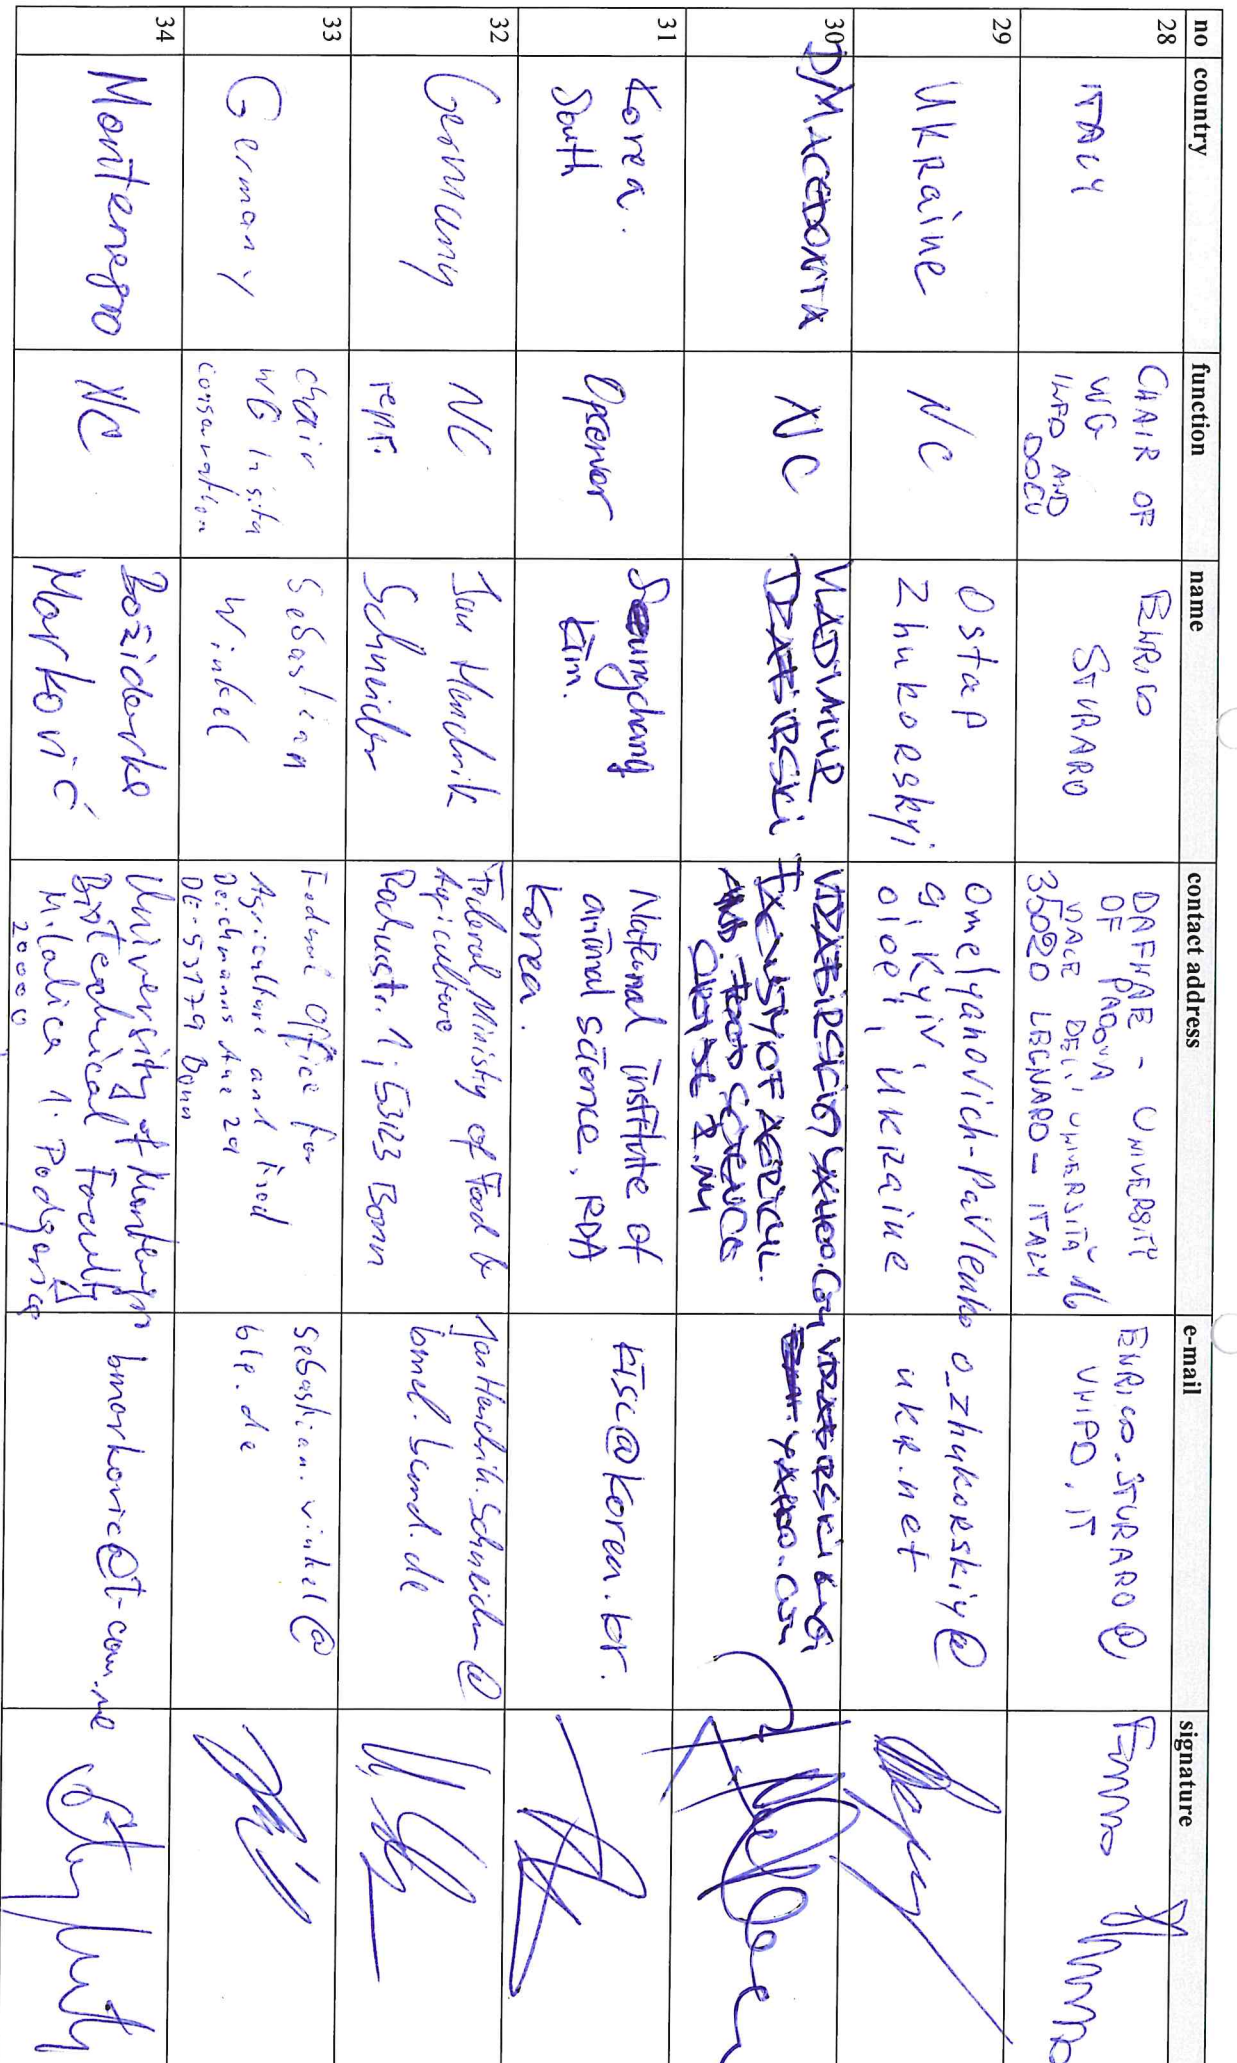 no country function name contact address e-mail signature
28
ITALY
CHAIR OF
WG
INFO AND
DOCU
ENRICO
STURARO
DAFNAE - UNIVERSITY
OF PADOVA
VIALE DELL'UNIVERSITÀ 16
35020 LEGNARO - ITALY
ENRICO.STURARO@
UNIPD.IT
29
UKRaine
NC
Ostap
Zhukorskyi
Omelyanovich-Pavlenko
9, Kyiv,
01001, UKRaine
o_zhukorskiy@
ukr.net
30
MACEDONIA
NC
VLADIMIR
DZABIRSKI
31
Korea.
South
Seungchang
Kim.
National institute of
animal science, RDA
Korea.
32
Germany
NC
repr.
Jan Hendrik
Schneider
Federal Ministry of Food &
Agriculture
Rochusstr. 1, 53123 Bonn
JanHendrik.Schneider@
bmel.bund.de
33
Germany
chair
WG In situ
conservation
Sebastian
Winkel
Federal Office for
Agriculture and Food
Deichmanns Aue 29
DE-53179 Bonn
Sebastian.winkel@
ble.de
34
Montenegro
NC
Božidarka
Marković
University of Montenegro
Biotechnical Faculty
Mihaila Lalića 1. Podgorica
20000
bmarkovic@t-com.me